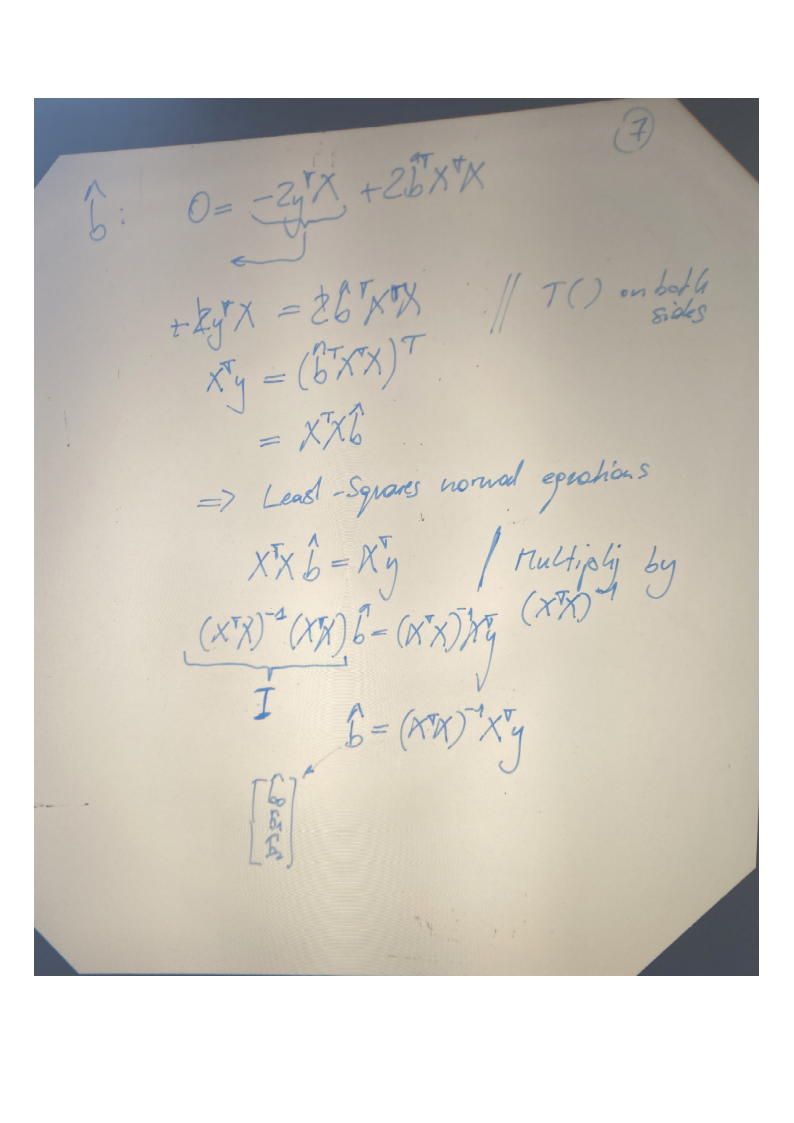 7
b̂: 0 = -2yᵀX + 2b̂ᵀXᵀX
+2yᵀX = 2b̂ᵀXᵀX // T() on both sides
Xᵀy = (b̂ᵀXᵀX)ᵀ
= XᵀXb̂
=> Least-Squares normal equations
XᵀX b̂ = Xᵀy / Multiply by (XᵀX)⁻¹
(XᵀX)⁻¹(XᵀX) b̂ = (XᵀX)⁻¹Xᵀy
I
b̂ = (XᵀX)⁻¹Xᵀy